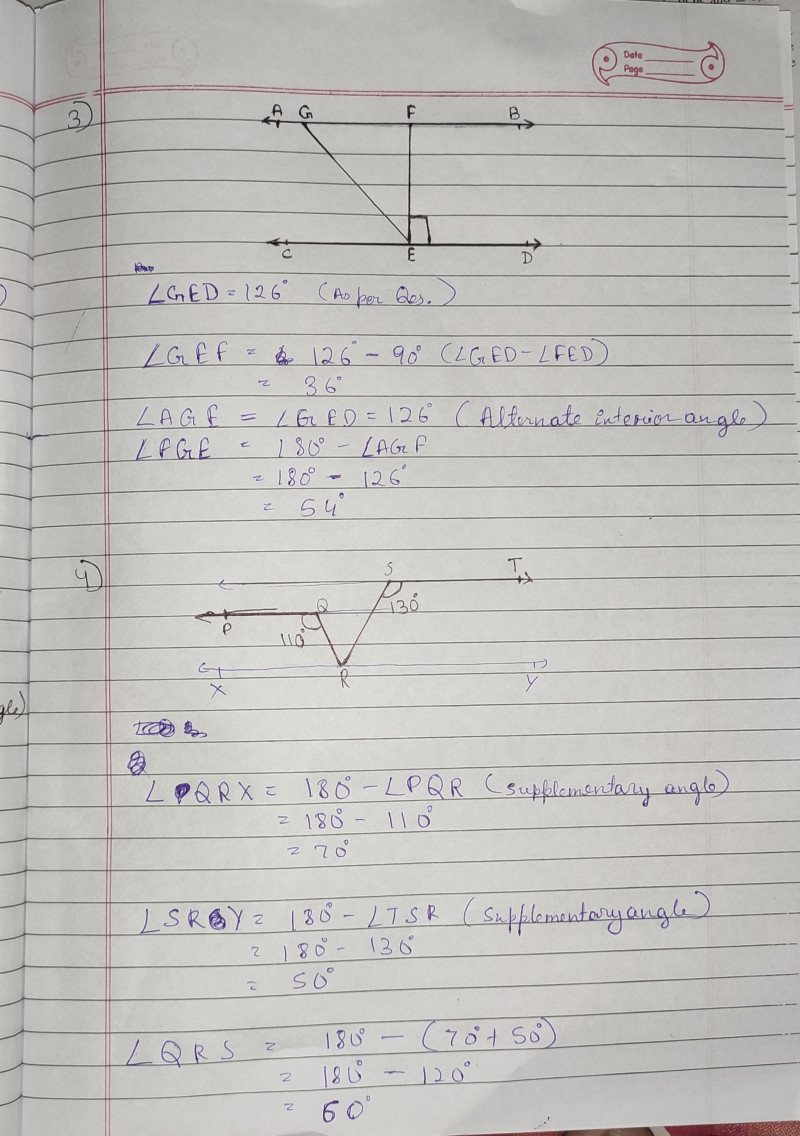 Date
Page
3)
A G F B
C E D
∠GED = 126° (As per Qes.)
∠GEF = 126° - 90° (∠GED - ∠FED)
= 36°
∠AGE = ∠GED = 126° (Alternate interior angle)
∠FGE = 180° - ∠AGE
= 180° - 126°
= 54°
4)
S T
130°
P Q
110°
X R Y
gle)
∠QRX = 180° - ∠PQR (supplementary angle)
= 180° - 110°
= 70°
∠SRY = 180° - ∠TSR (supplementary angle)
= 180° - 130°
= 50°
∠QRS = 180° - (70° + 50°)
= 180° - 120°
= 60°